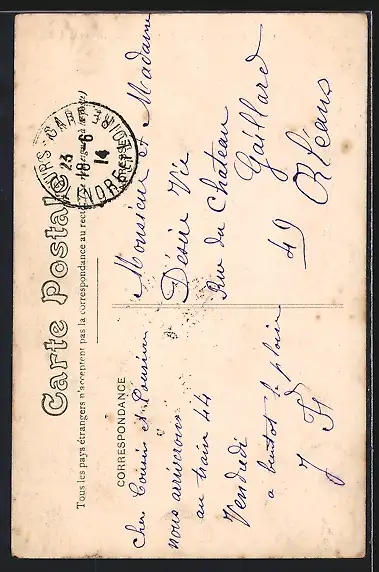 Carte Postale
Tous les pays étrangers n'acceptent pas la correspondance au recto
CORRESPONDANCE
TOURS-GARE
23
18-6
14
INDRE ET LOIRE
Cher Cousin et Cousine
nous arriverons
au train 44
Vendredi
a bientot le plaisir
J F
Monsieur et Madame
Désiré Vié
Rue du Chateau
Gaillard
49
Orléans